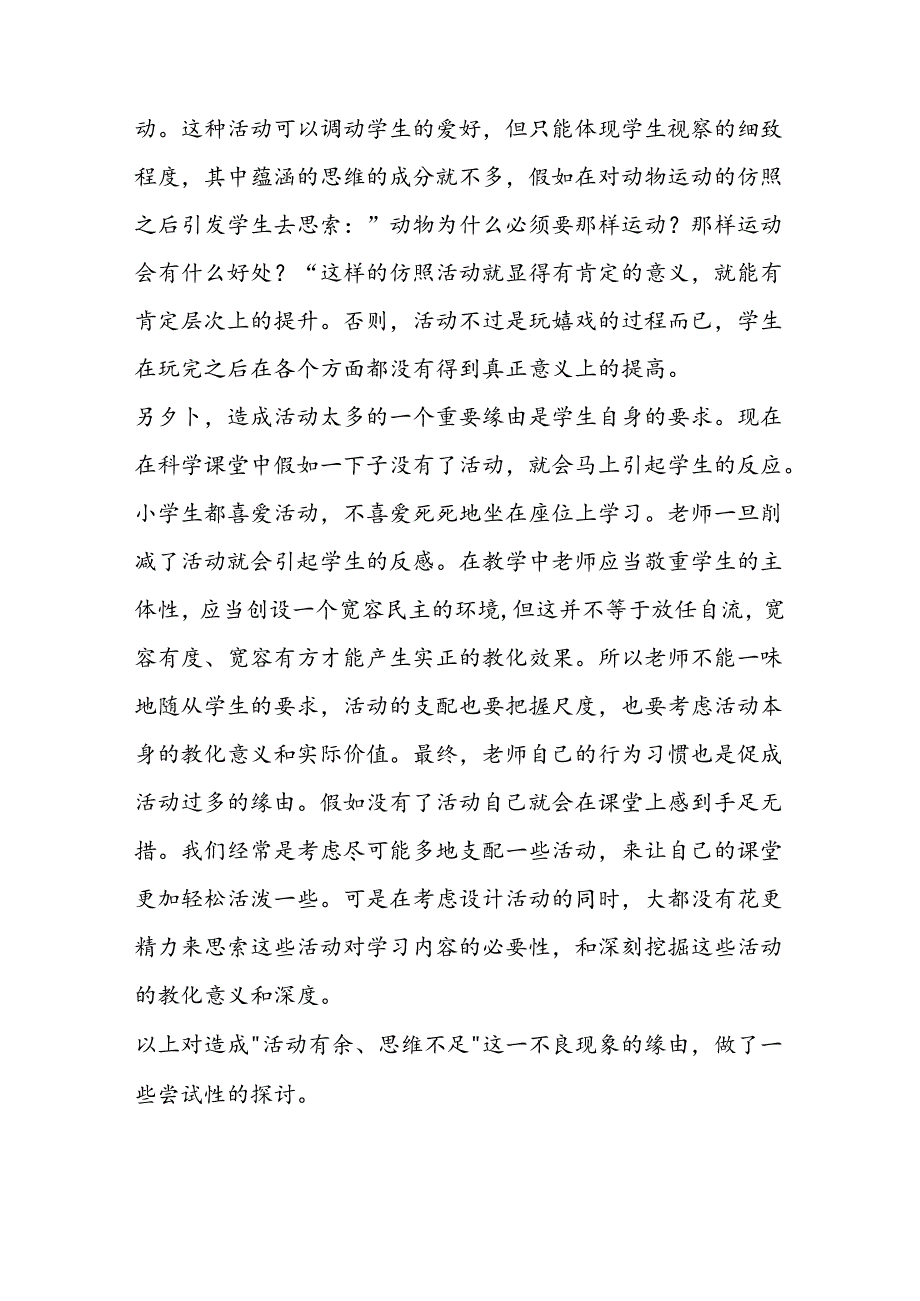 动。这种活动可以调动学生的爱好，但只能体现学生视察的细致
程度，其中蕴涵的思维的成分就不多，假如在对动物运动的仿照
之后引发学生去思索：”动物为什么必须要那样运动？那样运动
会有什么好处？“这样的仿照活动就显得有肯定的意义，就能有
肯定层次上的提升。否则，活动不过是玩嬉戏的过程而已，学生
在玩完之后在各个方面都没有得到真正意义上的提高。
另夕卜，造成活动太多的一个重要缘由是学生自身的要求。现在
在科学课堂中假如一下子没有了活动，就会马上引起学生的反应。
小学生都喜爱活动，不喜爱死死地坐在座位上学习。老师一旦削
减了活动就会引起学生的反感。在教学中老师应当敬重学生的主
体性，应当创设一个宽容民主的环境,但这并不等于放任自流，宽
容有度、宽容有方才能产生实正的教化效果。所以老师不能一味
地随从学生的要求，活动的支配也要把握尺度，也要考虑活动本
身的教化意义和实际价值。最终，老师自己的行为习惯也是促成
活动过多的缘由。假如没有了活动自己就会在课堂上感到手足无
措。我们经常是考虑尽可能多地支配一些活动，来让自己的课堂
更加轻松活泼一些。可是在考虑设计活动的同时，大都没有花更
精力来思索这些活动对学习内容的必要性，和深刻挖掘这些活动
的教化意义和深度。
以上对造成"活动有余、思维不足"这一不良现象的缘由，做了一
些尝试性的探讨。